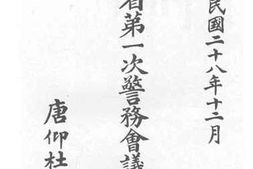 民國二十八年十二月
省第一次警務會議
唐仰杜